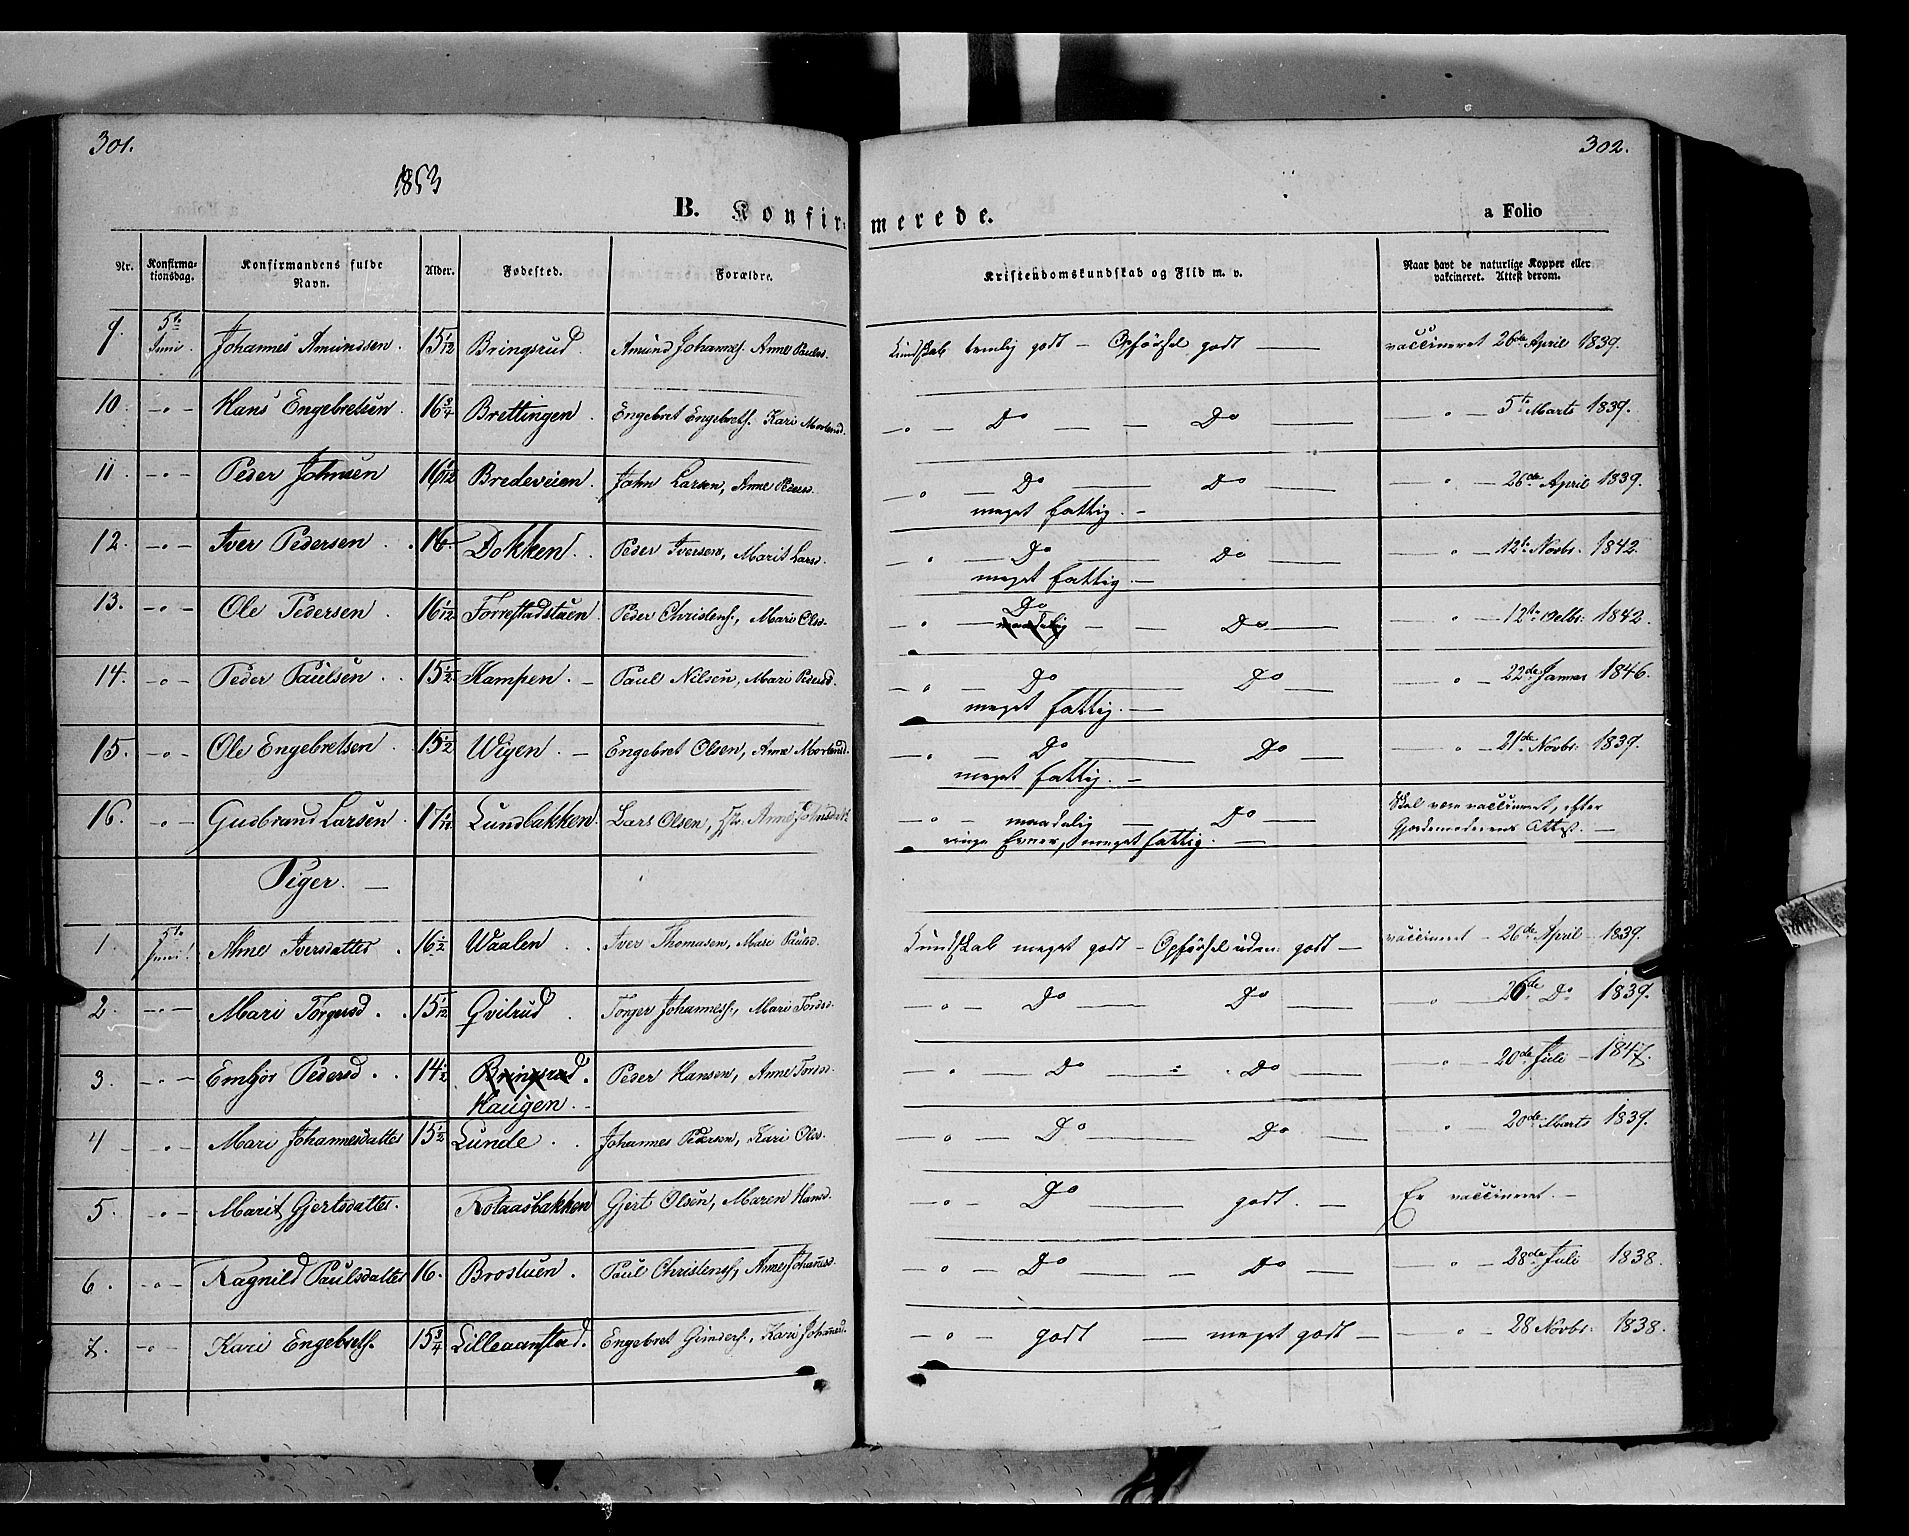 301.
302.
1853
B. Konfirmerede.
a Folio
Nr. Konfirmationsdag. Konfirmandens fulde Navn. Alder. Fødested. Forældre. Kristendomskundskab og Flid m. v. Naar havt de naturlige Kopper eller vakcineret. Attest derom.
9. 5te Juni. Johannes Amundsen. 15 1/12 Bringsrud. Amund Johannes. Anne Paulsd. Kundskab temlig godt — Opførsel godt — vaccineret 26de April 1839.
10. -"- Hans Engebretsen. 16 3/4 Brettingen. Engebret Engebrets. Kari Mortensd. -"- Do — Do — " — 5te Marts 1839.
11. -"- Peder Johnsen 16 1/12 Bredeveien. John Larsen, Anne Pedersd. -"- Do — Do — " — 26de April 1839.
meget fattig. —
12. -"- Iver Pedersen. 16. Dokken. Peder Iversen, Marit Larsd. " — Do — Do — " — 12te Novbr. 1842.
meget fattig. —
13. -"- Ole Pedersen 16 1/12 Forrestadstuen Peder Christens., Mari Olsd. -"- maadelig Do — Do — " — 12te Octbr: 1842.
14. -"- Peder Paulsen. 15 1/2 Kampen. — Paul Nilsen, Mari Pedersd. -"- Do — Do — " — 22de Januar 1846.
meget fattig. —
15. -"- Ole Engebretsen. 15 1/2 Wigen. — Engebret Olsen, Anne Mortensd. -"- Do — Do — " — 21de Novbr: 1839.
meget fattig. —
16. " — Gudbrand Larsen 17 1/12 Lundbakken. Lars Olsen, Anne Johnsdatt. -"- maadelig — Do — Skal være vaccineret, efter
ringe Evner, meget fattig. — Gjordemoderens Attest. —
Piger. —
1. 5te Juni! Anne Iversdatter. 16 1/2 Waalen. Iver Thomasen, Mari Paulsd. Kundskab meget godt — Opførsel uden: godt — vaccineret — 26de April 1839.
2. -"- Mari Torgersd. 15 1/12 Qvilrud. Torger Johanness., Mari Tordsd. -"- Do — Do — " — 26de Do 1839.
3. -"- Embjør Pedersd. 14 1/2 Bringsrud. Peder Hansen, Anne Tordsd. -"- Do — Do — " — 20de Juli — 1847.
Haugen. —
4 — " — Mari Johannesdatter 15 1/2 Lunde. Johannes Pedersen, Kari Olsd. " — Do — Do — " — 20de Marts 1839.
5. -"- Marit Gjertsdatter. Rotaasbakken Gjert Olsen, Maren Hansd. -"- Do — godt. — Er vaccineret. —
6. -"- Ragnild Paulsdatter 16. Brostuen. Paul Christens., Anne Johannesd. -"- Do — Do — " — 28de Juli 1838.
7. -"- Kari Engebrets. 15 3/4 Lilleaanstad. Engebret Gunders., Kari Johansd. -"- godt — meget godt — " — 28 Novbr: 1838.